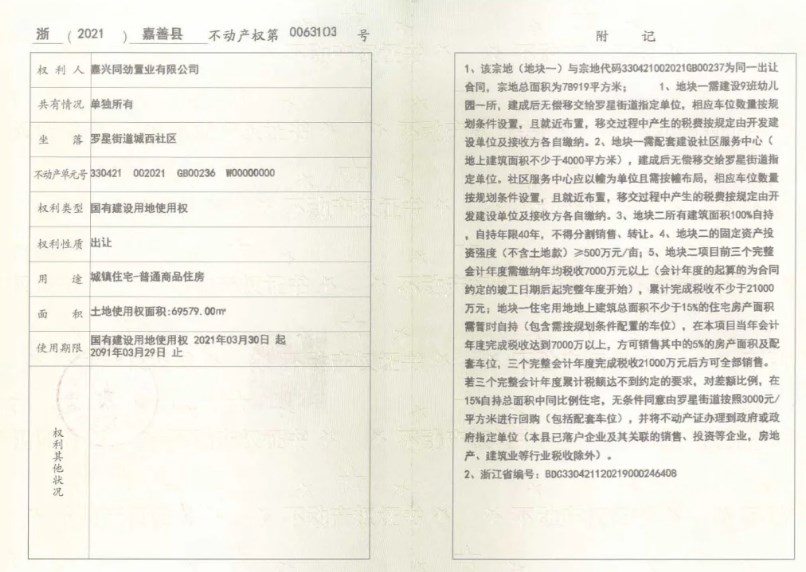 浙 ( 2021 ) 嘉善县 不动产权第 0063103 号
权利人 嘉兴同劲置业有限公司
共有情况 单独所有
坐落 罗星街道城西社区
不动产单元号 330421 002021 GB00236 W00000000
权利类型 国有建设用地使用权
权利性质 出让
用途 城镇住宅-普通商品住房
面积 土地使用权面积:69579.00㎡
使用期限 国有建设用地使用权 2021年03月30日 起
2091年03月29日 止
权利其他状况
附 记
1、该宗地（地块一）与宗地代码330421002021GB00237为同一出让
合同，宗地总面积为78919平方米； 1、地块一需建设9班幼儿
园一所，建成后无偿移交给罗星街道指定单位，相应车位数量按规
划条件设置，且就近布置，移交过程中产生的税费按规定由开发建
设单位及接收方各自缴纳。2、地块一需配套建设社区服务中心（
地上建筑面积不少于4000平方米），建成后无偿移交给罗星街道指
定单位。社区服务中心应以幢为单位且需按幢布局，相应车位数量
按规划条件设置，且就近布置，移交过程中产生的税费按规定由开
发建设单位及接收方各自缴纳。3、地块二所有建筑面积100%自持
，自持年限40年，不得分割销售、转让。4、地块二的固定资产投
资强度（不含土地款）≥500万元/亩；5、地块二项目前三个完整
会计年度需缴纳年均税收7000万元以上（会计年度的起算的为合同
约定的竣工日期后起完整年度开始），累计完成税收不少于21000
万元；地块一住宅用地地上建筑总面积不少于15%的住宅房产面积
需暂时自持（包含需按规划条件配置的车位），在本项目当年会计
年度完成税收达到7000万以上，方可销售其中的5%的房产面积及配
套车位，三个完整会计年度完成税收21000万元后方可全部销售。
若三个完整会计年度累计税额达不到约定的要求，对差额比例，在
15%自持总面积中同比例住宅，无条件同意由罗星街道按照3000元/
平方米进行回购（包括配套车位），并将不动产证办理到政府或政
府指定单位（本县已落户企业及其关联的销售、投资等企业，房地
产、建筑业等行业税收除外）。
2、浙江省编号：BDC330421120219000246408